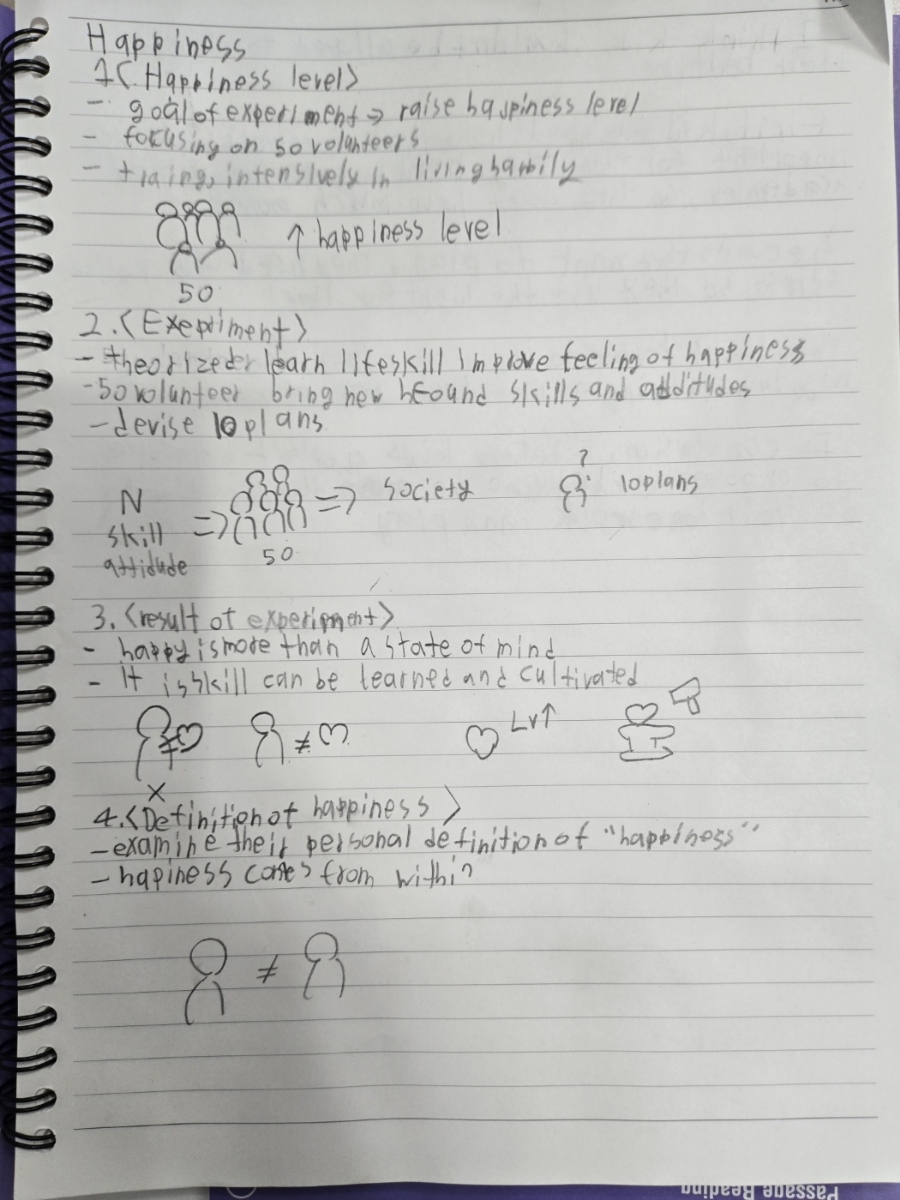 Happiness
1〈Happiness level〉
- goal of experiment → raise happiness level
- fokusing on 50 volunteers
- traing, intensively in living happily
↑ happiness level
50
2.〈Exepriment〉
- theorizeder learn lifeskill improve feeling of happiness
-50 volunteer bring new found skills and additudes
- devise 10 plans
?
N skill attidude ⇒ ⇒ society 10plans
50
3.〈result of experipment〉
- happy is more than a state of mind
- It is skill can be learned and cultivated
≠ ≠ Lv↑
X
4.〈Definition of happiness〉
- examine their personal definition of "happiness"
- hapiness comes from within
≠
Passage Reading